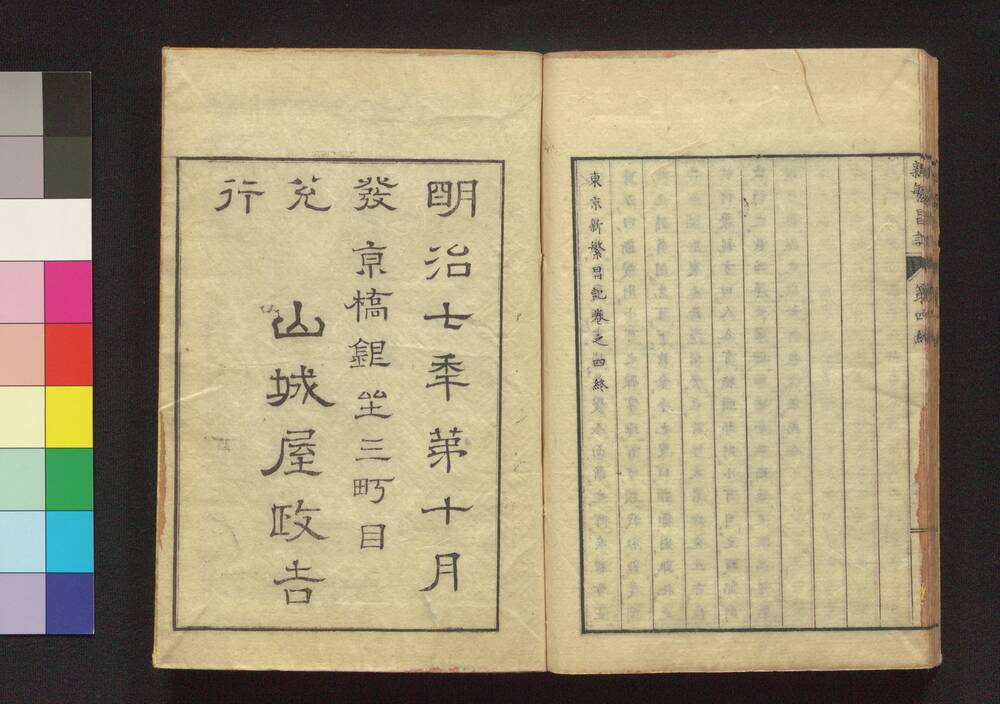 新繁昌記
第四終
東京新繁昌記卷之四終
明治七季第十月
發兌行
京橋銀坐三町目
山城屋政吉